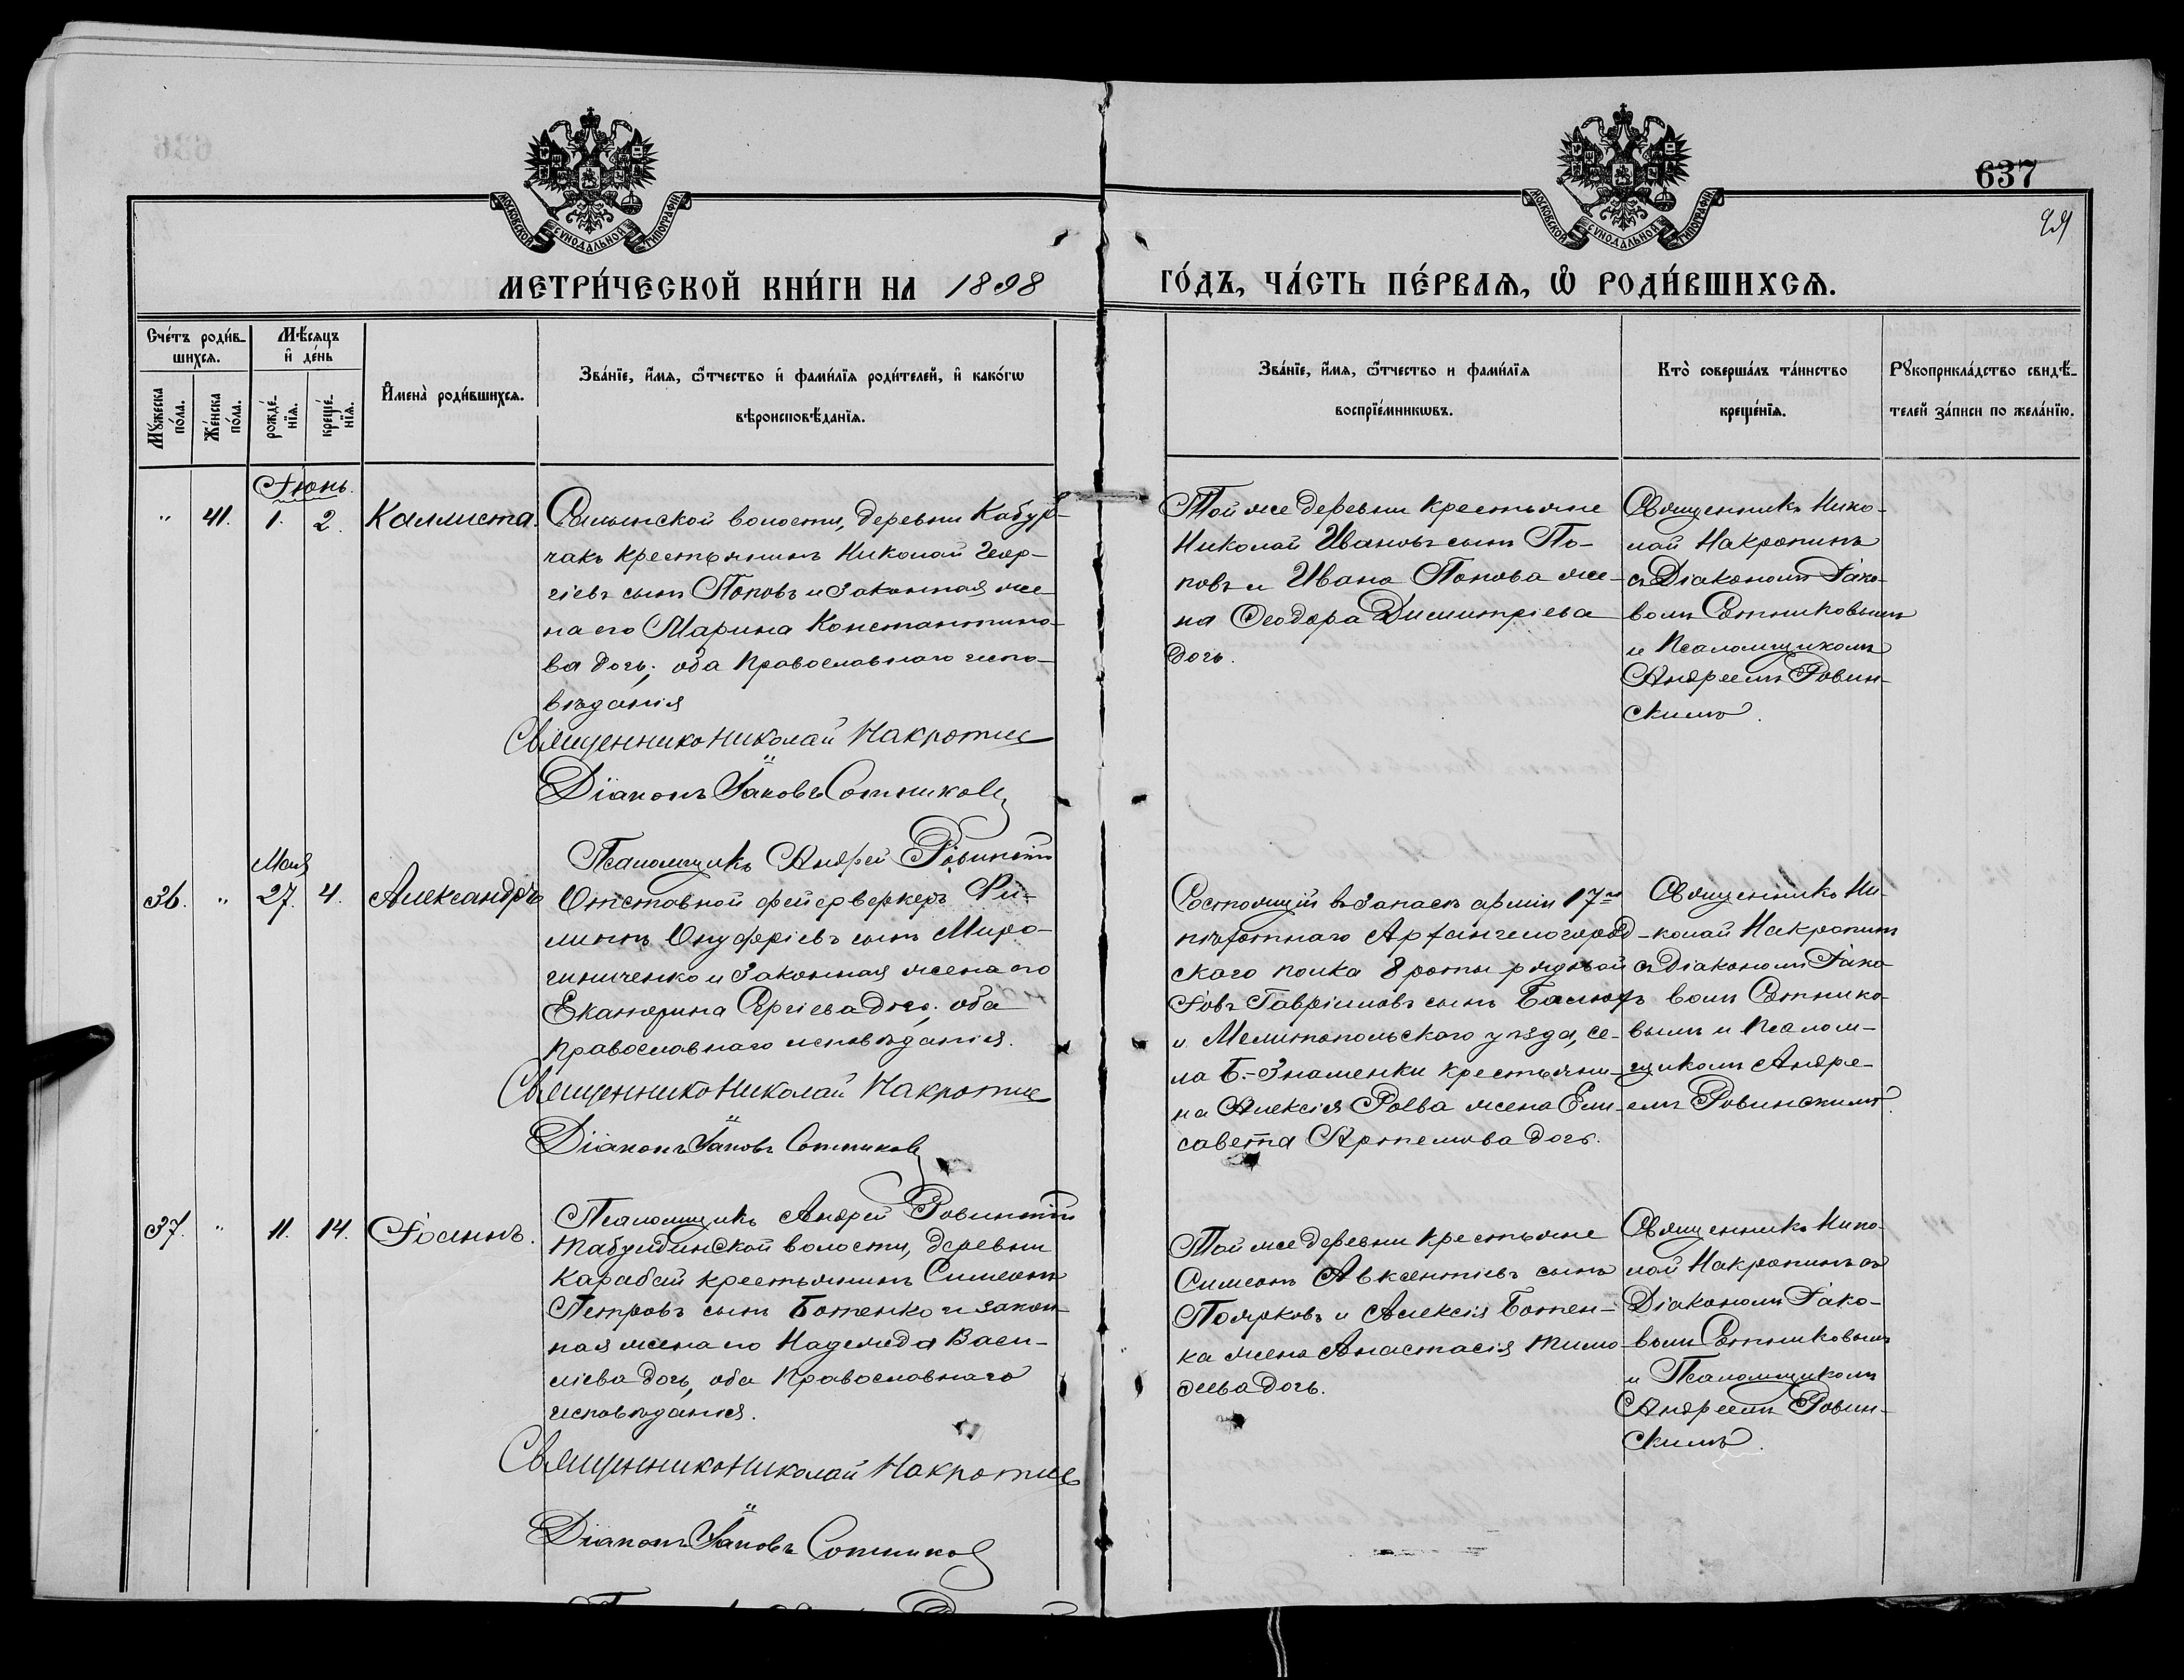 637
МОСКОВСКОЙ СѴНОДАЛЬНОЙ ТИПОГРАФІИ
МОСКОВСКОЙ СѴНОДАЛЬНОЙ ТИПОГРАФІИ
МЕТРИ́ЧЕСКОЙ КНИ́ГИ НА 1898
ГО́ДЪ, ЧА́СТЬ ПЕ́РВАѦ, Ѽ РОДИ́ВШИХСѦ.
Сче́тъ роди́в-
шихсѧ.
Мꙋжеска по́ла.
Же́нска по́ла.
Мѣ́сѧцъ
и҆ де́нь
рожде́-
нїѧ.
креще́-
нїѧ.
И҆мена̀ роди́вшихсѧ.
Зва́нїе, и҆́мѧ, ѻ҆́тчество и҆ фами́лїѧ роди́телей, и҆ како́гѡ
вѣроисповѣ́данїѧ.
Зва́нїе, и҆́мѧ, ѻ҆́тчество и фами́лїѧ
воспрїе́мникѡвъ.
Кто̀ соверша́лъ та́инство
креще́нїѧ.
Рꙋкоприкла́дство свидѣ́-
телей за́писи по жела́нїю.
Іюнь.
" 41. 1. 2. Каллиста.
волости, деревни Кабур-
чакъ крестьянинъ Николай Геор-
гіевъ сынъ Поповъ и законная же-
на его Марина Константино-
ва дочь; оба Православнаго испо-
вѣданія
Священникъ Николай Накропин
Діаконъ Іаковъ Сотников
Псаломщикъ Андрей Ровинскій
Той же деревни крестьяне
Николай Ивановъ сынъ По-
повъ и Ивана Попова же-
на Ѳеодора Димитріева
дочь.
Священникъ Нико-
лай Накропинъ
съ Діакономъ Іако-
вомъ Сотниковымъ
и Псаломщикомъ
Андреемъ Ровин-
скимъ.
Мая
36. " 27. 4. Александръ
Отставной фейерверкеръ Фи-
липпъ Онуфріевъ сынъ Миро-
шниченко и законная жена его
Екатерина Сергіева дочь; оба
Православнаго исповѣданія.
Священникъ Николай Накропин
Діаконъ Іаковъ Сотников
Псаломщикъ Андрей Ровинскій
Состоящій въ запасѣ арміи 17го
пѣхотнаго Архангелогород-
скаго полка 8 роты рядовой
Іовъ Гавріиловъ сынъ
и Мелитопольскаго уѣзда, се-
ла Б.-Знаменки крестьяни-
на Алексія Роева жена Ели-
савета Артемова дочь.
Священникъ Ни-
колай Накропинъ
съ Діакономъ Іако-
вомъ Сотнико-
вымъ и Псалом-
щикомъ Андре-
емъ Ровинскимъ.
37. " 11. 14. Іоаннъ.
Табулдинской волости, деревни
Карабай крестьянинъ Симеонъ
Петровъ сынъ Ботенко и закон-
ная жена его Надежда Васи-
ліева дочь, оба Православнаго
исповѣданія.
Священникъ Николай Накропин
Діаконъ Іаковъ Сотников
Той же деревни крестьяне
Симеонъ Авксентіевъ сынъ
Поярковъ и Алексія Ботен-
ка жена Анастасія Тимо-
ѳеева дочь.
Священникъ Нико-
лай Накропинъ съ
Діакономъ Іако-
вомъ Сотниковымъ
и Псаломщикомъ
Андреемъ Ровин-
скимъ.